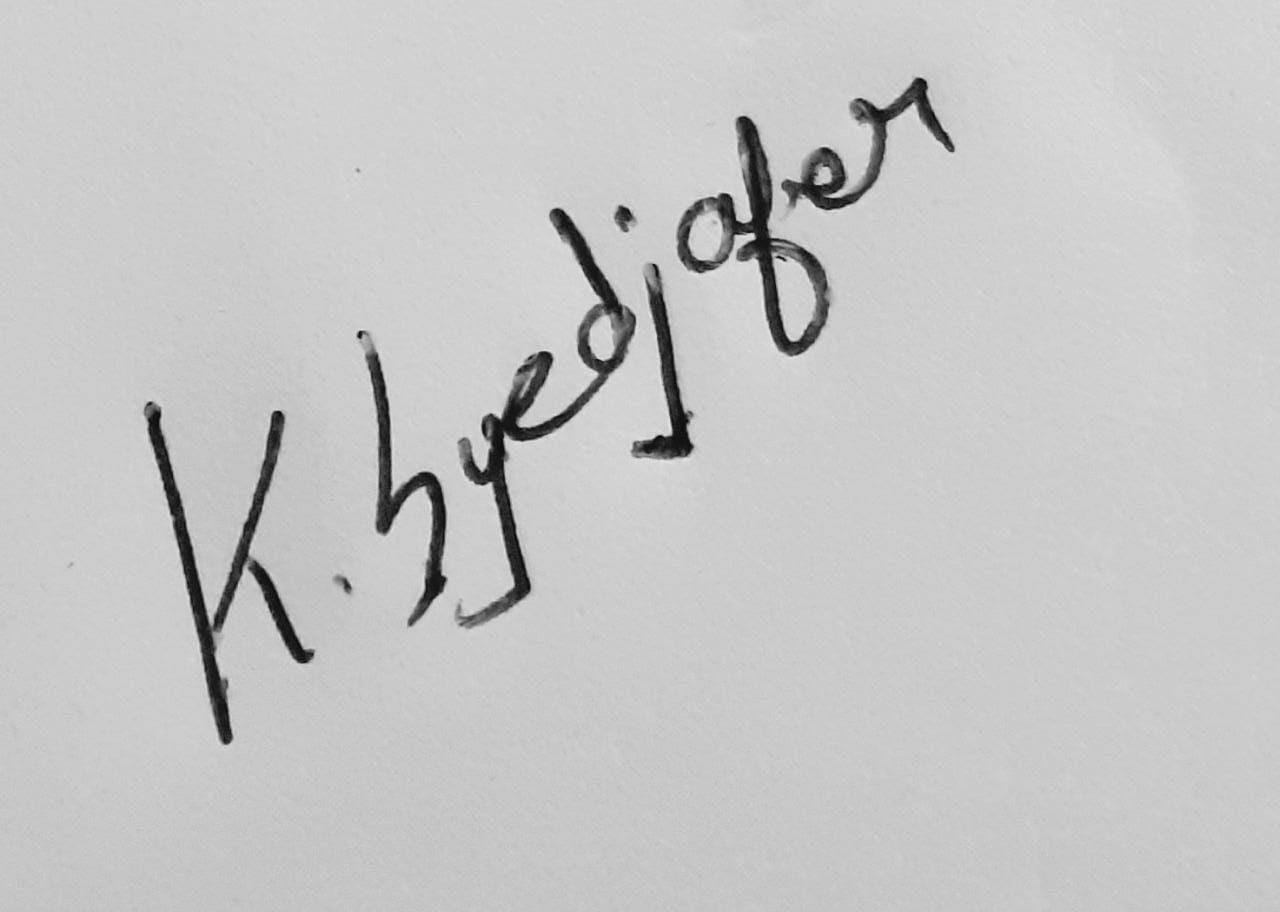 K. Syed jafer